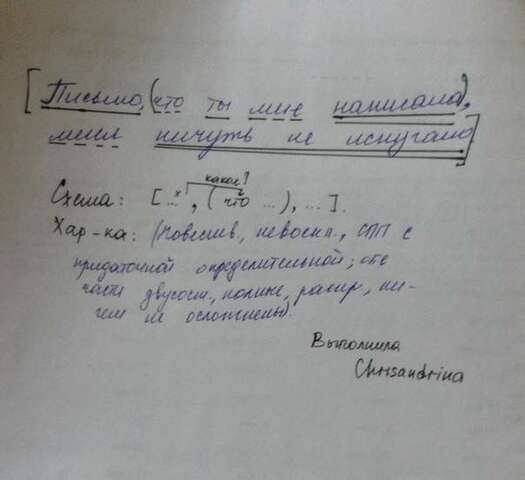 [Письмо, (что ты мне написала),
меня ничуть не испугало]
какое?
Схема: [...ˣ, (что ...), ...].
Хар-ка: (повеств, невоскл., СПП с
придаточной определительной; обе
части двусост., полные, распр, ни-
чем не осложнены).
Выполнила
Chrisandrina